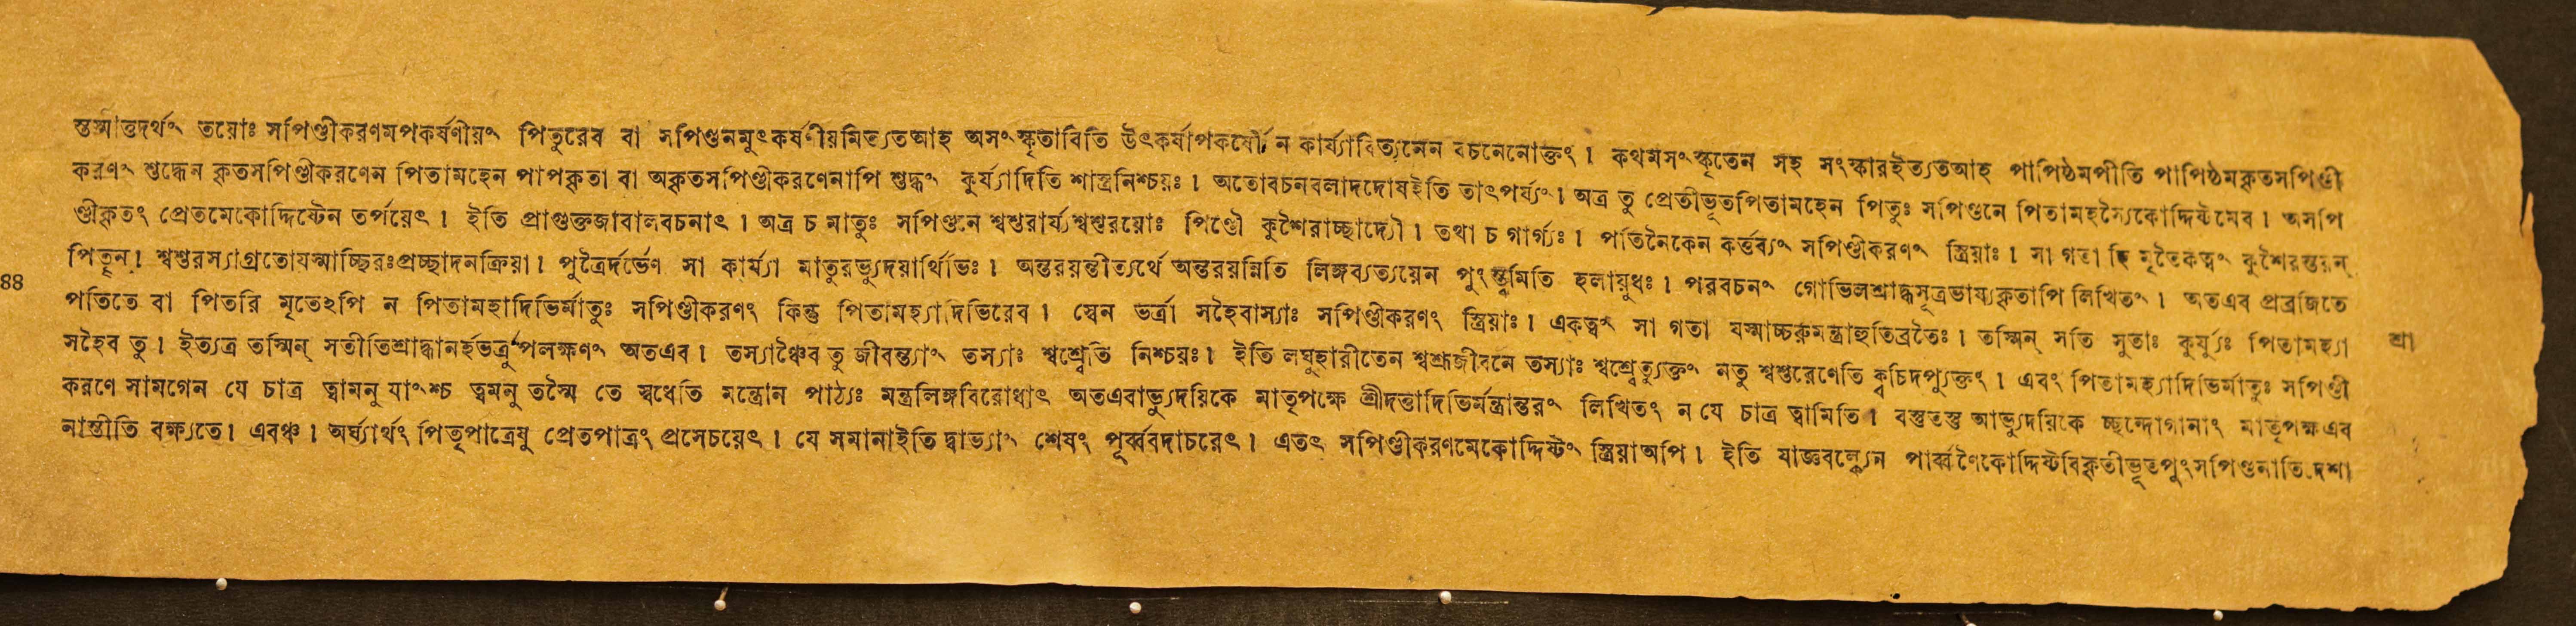 ন্তস্মাত্তদর্থং তয়োঃ সপিণ্ডীকরণমপকর্ষণীয়ং পিতুরেব বা সপিণ্ডনমুৎকর্ষণীয়মিত্যতআহ অসংস্কৃতাবিতি উৎকর্ষাপকর্ষৌ ন কার্য্যাবিত্যনেন বচনেনোক্তং। কথমসংস্কৃতেন সহ সংস্কারইত্যতআহ পাপিষ্ঠমপীতি পাপিষ্ঠমকৃতসপিণ্ডী
করণং শুদ্ধেন কৃতসপিণ্ডীকরণেন পিতামহেন পাপকৃতা বা অকৃতসপিণ্ডীকরণেনাপি শুদ্ধং কুর্য্যাদিতি শাস্ত্রনিশ্চয়ঃ। অতোবচনবলাদদোষইতি তাৎপর্য্যং। অত্র তু প্রেতীভূতপিতামহেন পিতুঃ সপিণ্ডনে পিতামহস্যৈকোদ্দিষ্টমেব। অসপি
ণ্ডীকৃতং প্রেতমেকোদ্দিষ্টেন তর্পয়েৎ। ইতি প্রাগুক্তজাবালবচনাৎ। অত্র চ মাতুঃ সপিণ্ডনে শ্বশুরার্য্যশ্বশুরয়োঃ পিণ্ডৌ কুশৈরাচ্ছাদ্যৌ। তথা চ গার্গ্যঃ। পতিনৈকেন কর্ত্তব্যং সপিণ্ডীকরণং স্ত্রিয়াঃ। সা গতা হি মৃতৈকত্বং কুশৈরন্তরয়ন্
পিতৄন্। শ্বশুরস্যাগ্রতোযস্মাচ্ছিরঃপ্রচ্ছাদনক্রিয়া। পুত্রৈর্দর্ভেণ সা কার্য্যা মাতুরভ্যুদয়ার্থিভিঃ। অন্তরয়ন্তীত্যর্থে অন্তরয়ন্নিতি লিঙ্গব্যত্যয়েন পুংস্ত্বমিতি হলায়ুধঃ। পরবচনং গোভিলশ্রাদ্ধসূত্রভাষ্যকৃতাপি লিখিতং। অতএব প্রব্রজিতে
৪৪
পতিতে বা পিতরি মৃতেঽপি ন পিতামহাদিভির্মাতুঃ সপিণ্ডীকরণং কিন্তু পিতামহ্যাদিভিরেব। স্বেন ভর্ত্রা সহৈবাস্যাঃ সপিণ্ডীকরণং স্ত্রিয়াঃ। একত্বং সা গতা যস্মাচ্চরুমন্ত্রাহুতিব্রতৈঃ। তস্মিন্ সতি সুতাঃ কুর্য্যুঃ পিতামহ্যা
শ্রা
সহৈব তু। ইত্যত্র তস্মিন্ সতীতিশ্রাদ্ধানর্হভর্ত্রুপলক্ষণং অতএব। তস্যাঞ্চৈব তু জীবন্ত্যাং তস্যাঃ শ্বশ্র্বেতি নিশ্চয়ঃ। ইতি লঘুহারীতেন শ্বশ্রূজীবনে তস্যাঃ শ্বশ্র্বেত্যুক্তং নতু শ্বশুরেণেতি ক্বচিদপ্যুক্তং। এবং পিতামহ্যাদিভির্মাতুঃ সপিণ্ডী
করণে সামগেন যে চাত্র ত্বামনু যাংশ্চ ত্বমনু তস্মৈ তে স্বধেতি মন্ত্রোন পাঠ্যঃ মন্ত্রলিঙ্গবিরোধাৎ অতএবাভ্যুদয়িকে মাতৃপক্ষে শ্রীদত্তাদিভির্মন্ত্রান্তরং লিখিতং ন যে চাত্র ত্বামিতি। বস্তুতস্তু আভ্যুদয়িকে চ্ছন্দোগানাং মাতৃপক্ষএব
নাস্তীতি বক্ষ্যতে। এবঞ্চ। অর্ঘ্যার্থং পিতৃপাত্রেষু প্রেতপাত্রং প্রসেচয়েৎ। যে সমানাইতি দ্বাভ্যাং শেষং পূর্ব্ববদাচরেৎ। এতৎ সপিণ্ডীকরণমেকোদ্দিষ্টং স্ত্রিয়াঅপি। ইতি যাজ্ঞবল্ক্যেন পার্ব্বণৈকোদ্দিষ্টবিকৃতীভূতপুংসপিণ্ডনাতিদেশা